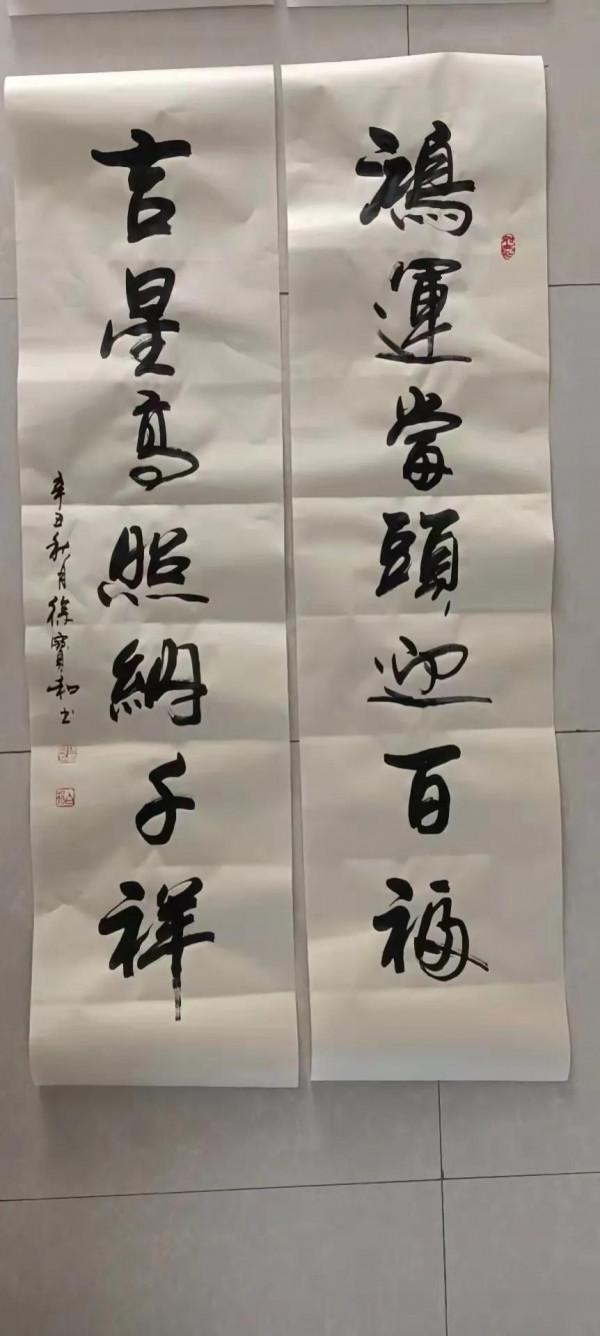 鴻運當頭迎百福
吉星高照納千祥
辛丑秋月徐寶和书